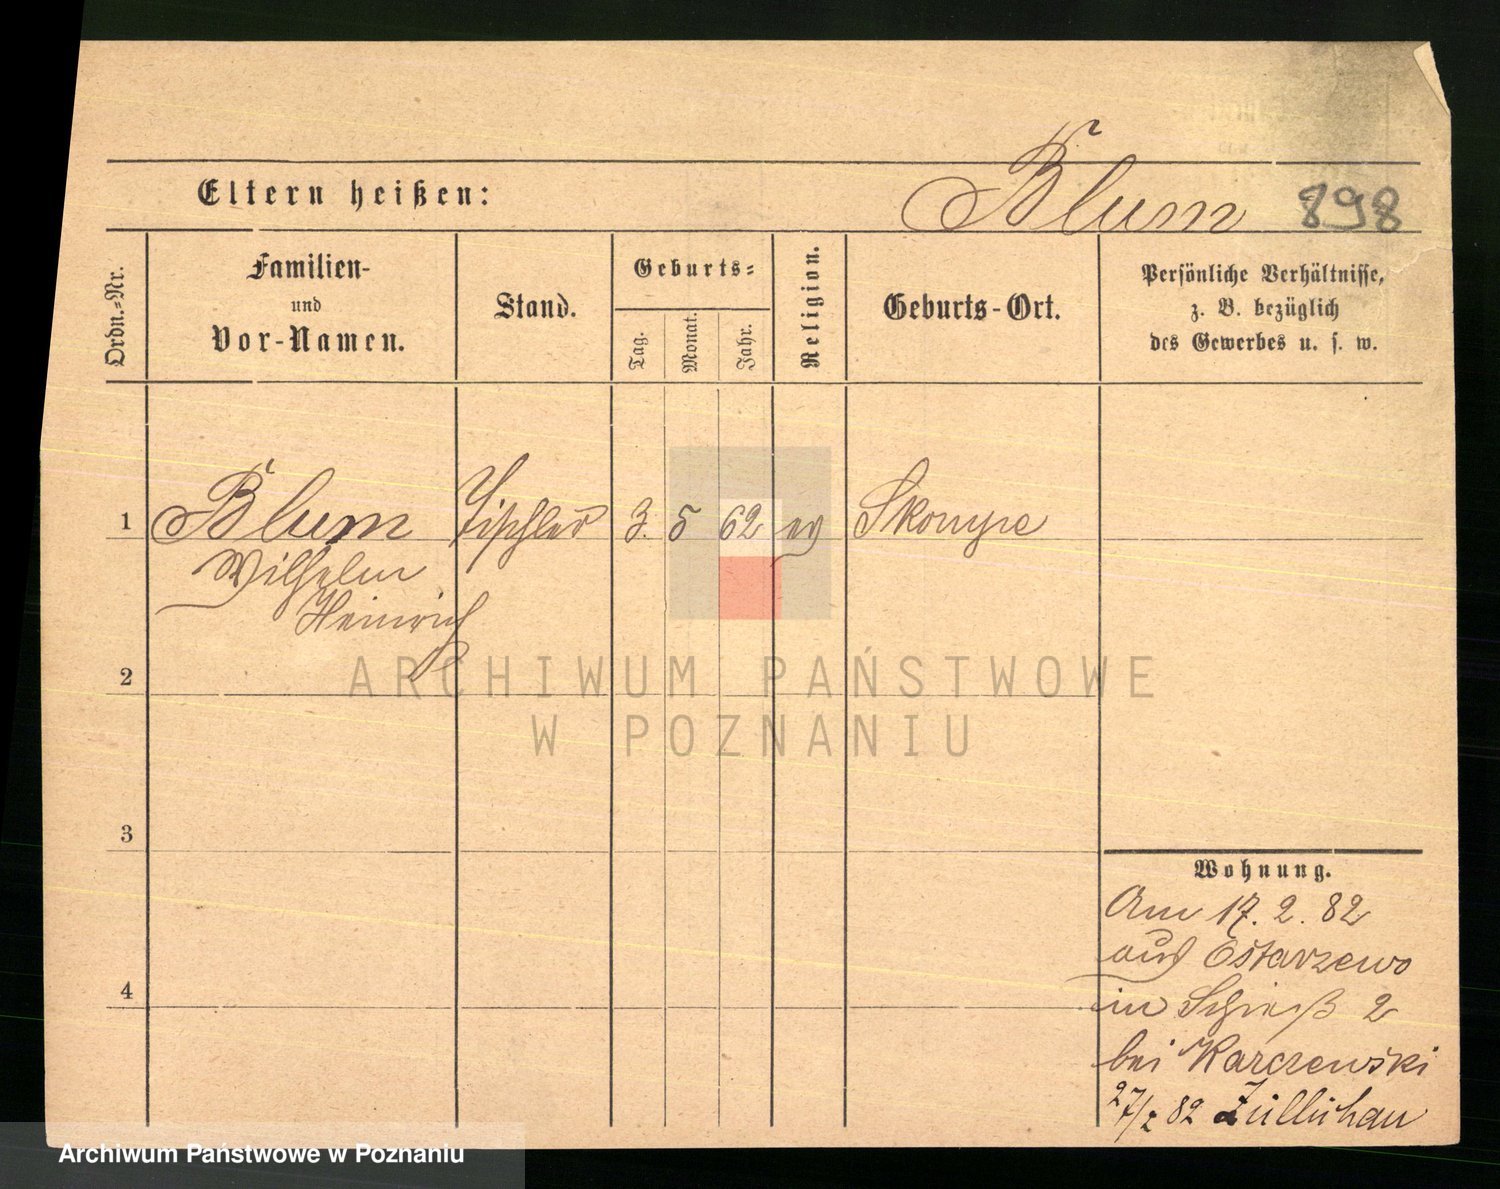 Eltern heißen: Blum 898
Ordn.-Nr.
Familien-
und
Vor-Namen.
Stand.
Geburts-
Tag.
Monat.
Jahr.
Religion.
Geburts-Ort.
Persönliche Verhältnisse,
z. B. bezüglich
des Gewerbes u. s. w.
1 Blum Tischler 3. 5 62 ev
Wilhelm
Heinrich
2
ARCHIWUM PAŃSTWOWE
W POZNANIU
3
Wohnung.
Am 17. 2. 82
aus
4
in Schieß 2
bei Karczewski
82 Züllichau
Archiwum Państwowe w Poznaniu